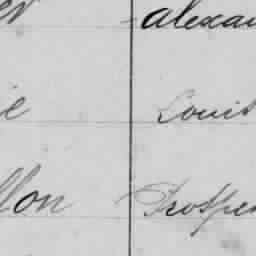 er alexan
ie Louis
llon Prosper